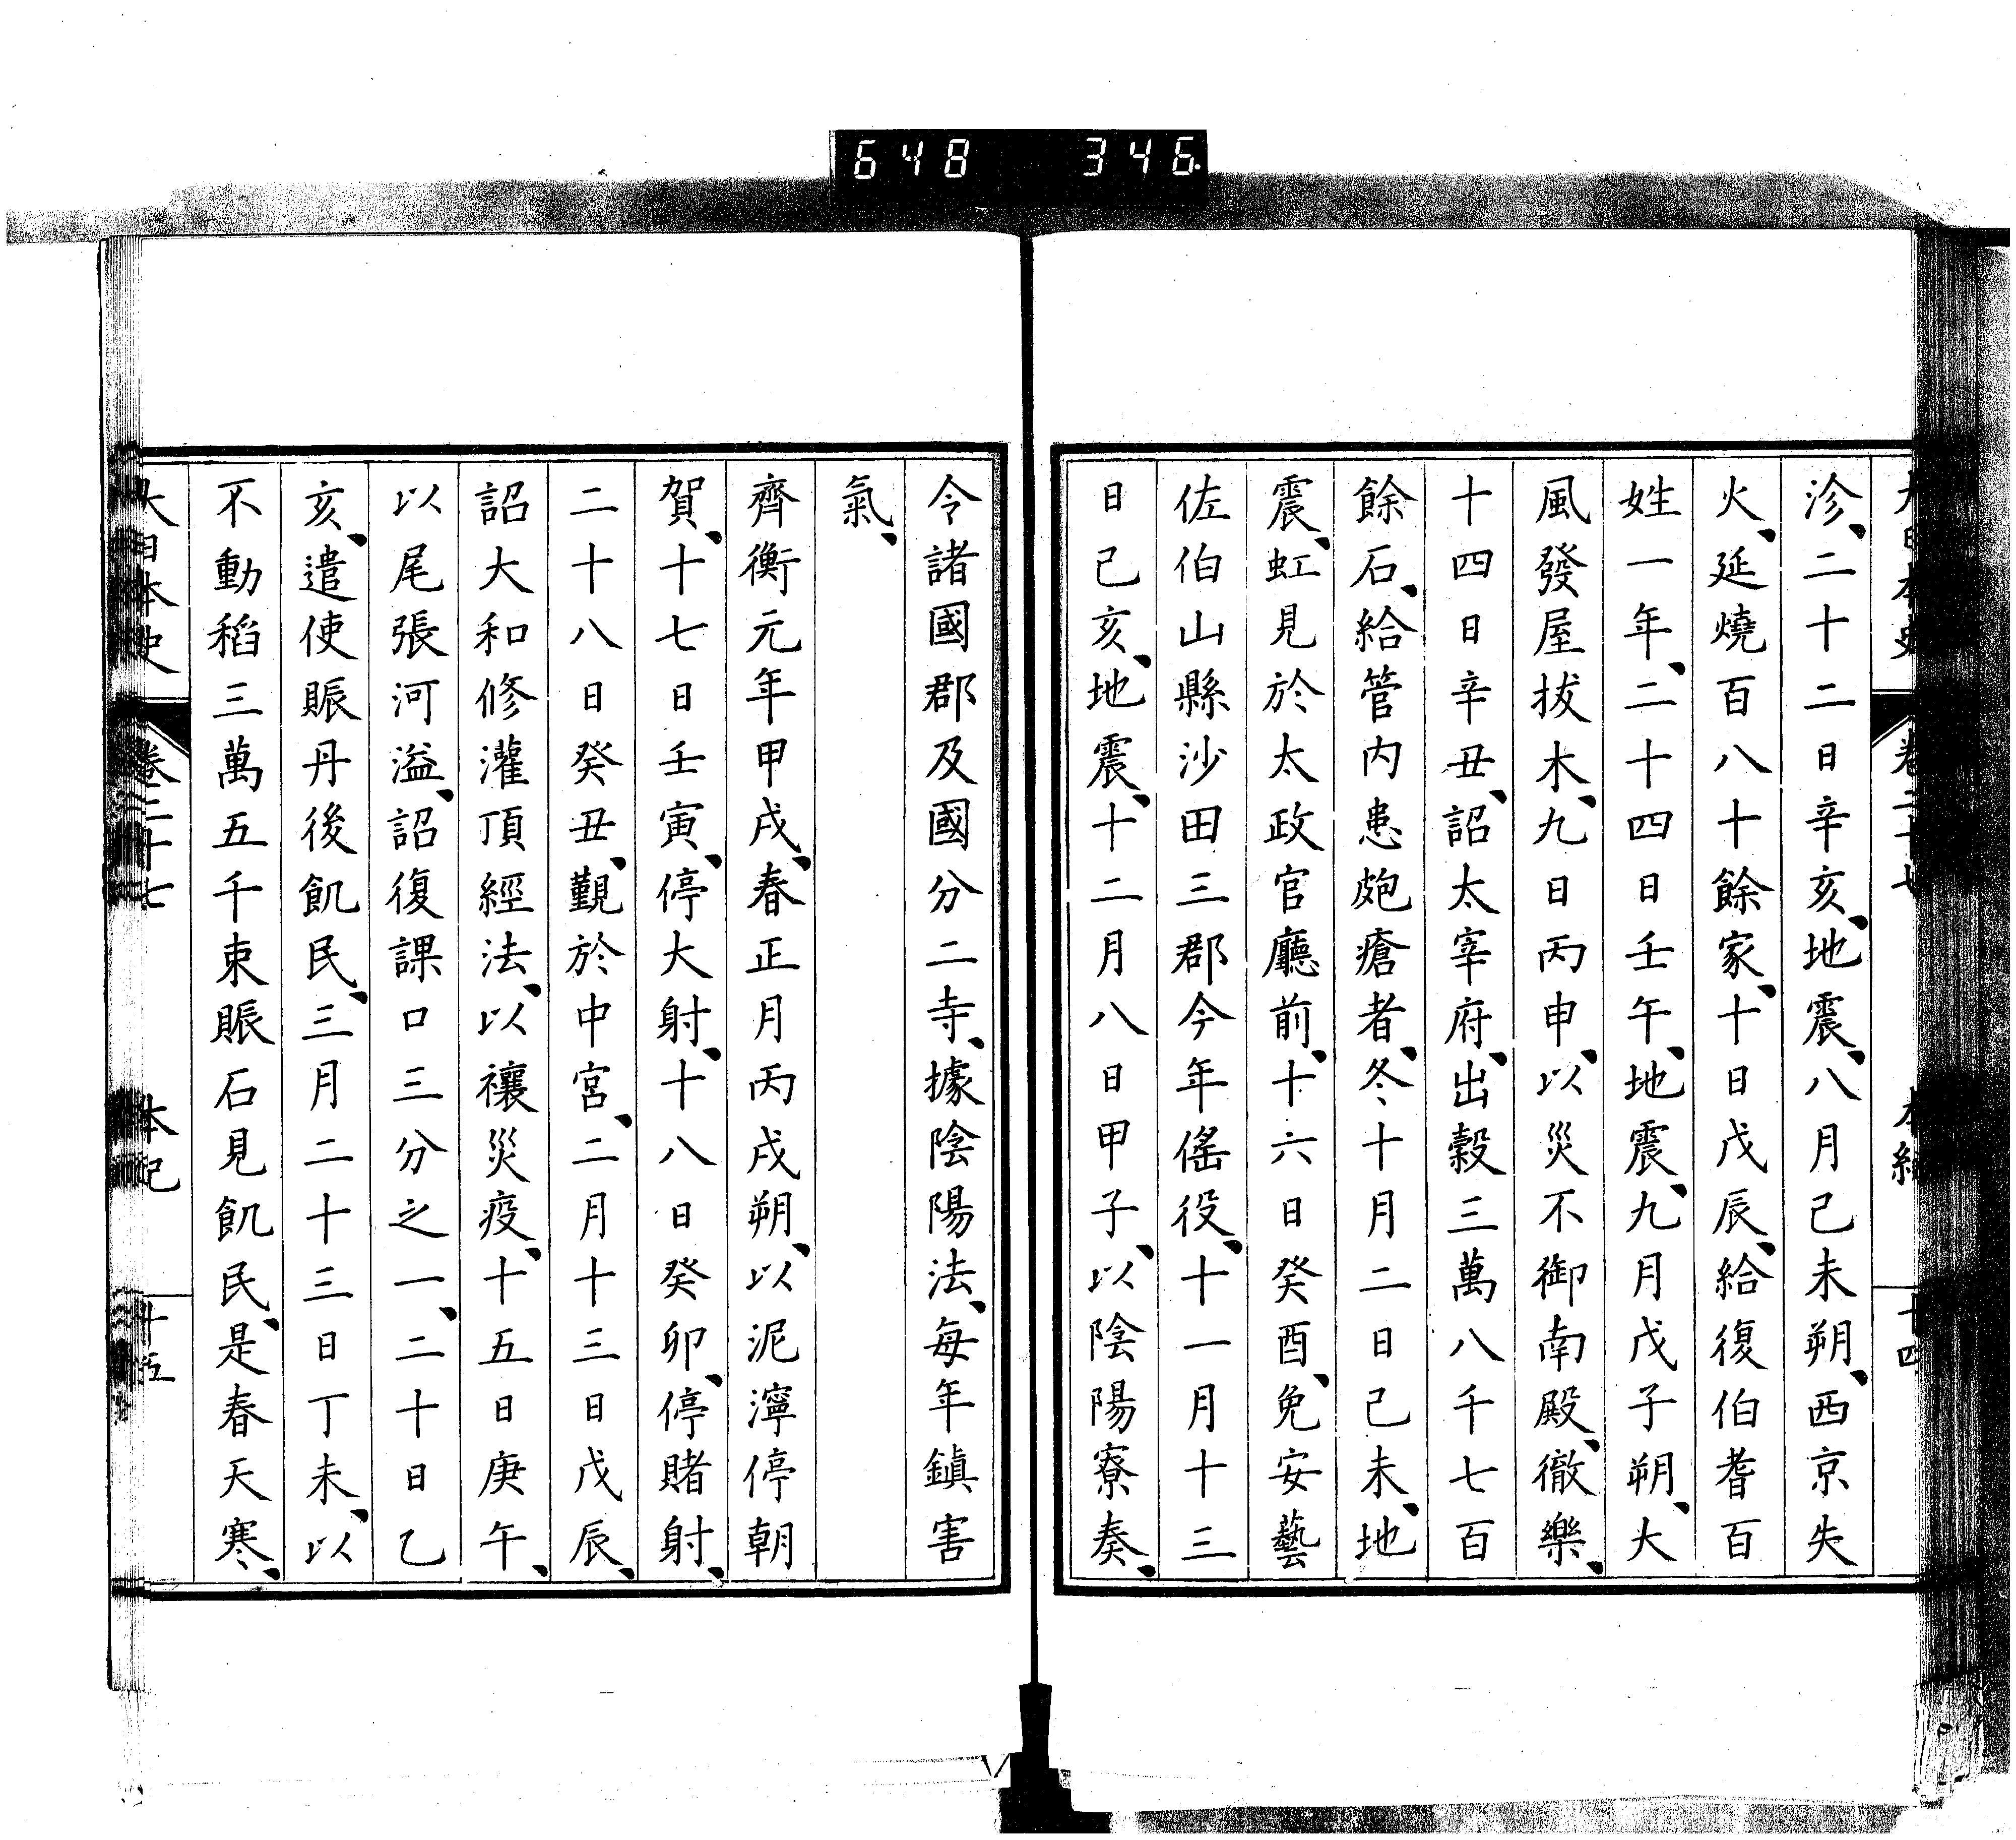 648 346
沴、二十二日辛亥、地震、八月己未朔、西京失
火、延燒百八十餘家、十日戊辰、給復伯耆百
姓一年、二十四日壬午、地震、九月戊子朔、大
風發屋拔木、九日丙申、以災不御南殿、徹樂、
十四日辛丑、詔太宰府、出穀三萬八千七百
餘石、給管内患皰瘡者、冬十月二日己未、地
震、虹見於太政官廳前、十六日癸酉、免安藝
佐伯山縣沙田三郡今年徭役、十一月十三
日己亥、地震、十二月八日甲子、以陰陽寮奏、
令諸國郡及國分二寺、據陰陽法、每年鎮害
氣、
齊衡元年甲戌、春正月丙戌朔、以泥濘停朝
賀、十七日壬寅、停大射、十八日癸卯、停賭射、
二十八日癸丑、覲於中宮、二月十三日戊辰、
詔大和修灌頂經法、以禳災疫、十五日庚午、
以尾張河溢、詔復課口三分之一、二十日乙
亥、遣使賑丹後飢民、三月二十三日丁未、以
不動稻三萬五千束賑石見飢民、是春天寒、
大日本史 卷二十七 本紀 十五